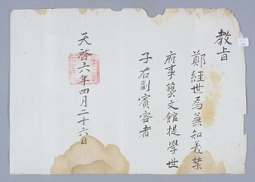 教旨
鄭經世爲兼知義禁
府事藝文館提學世
子右副賓客者
天啓六年四月二十六日